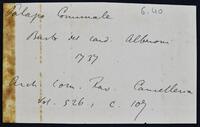 Palazzo Comunale 6.40
Busto del card. Alberoni
1737
Arch. Com. Rav. Cancelleria
Vol. 526, c. 107